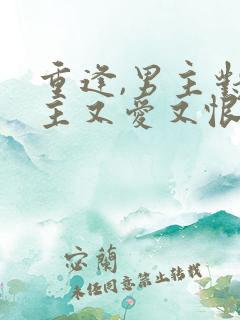 重逢,男主對
主又愛又恨
宓蘭
未经同意禁止转载